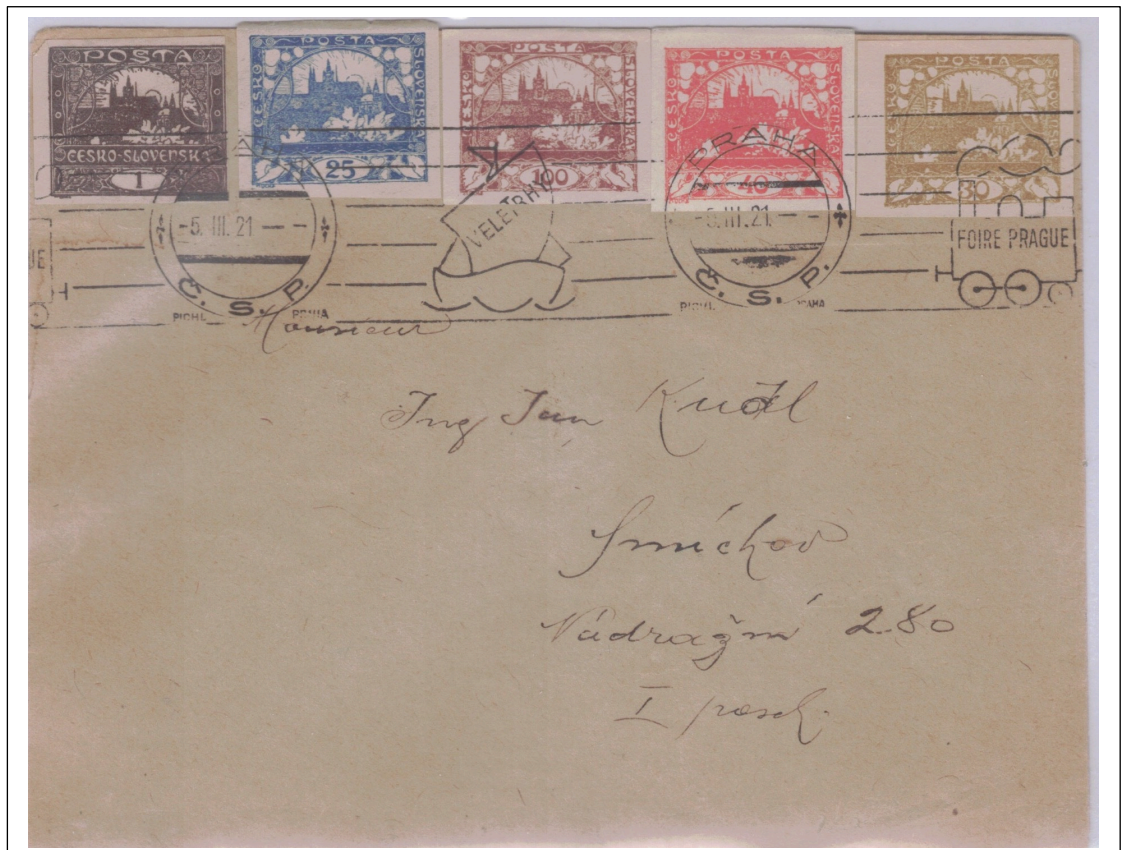 POSTA
ČESKO-SLOVENSKÁ
1
POSTA
ČESKO SLOVENSKÁ
25
POSTA
ČESKO SLOVENSKÁ
100
POSTA
ČESKO SLOVENSKÁ
40
POSTA
ČESKO SLOVENSKA
30
-5.III.21--
Č. S. P.
VELETRHY
PRAHA
-5.III.21.--
Č. S. P.
PRAHA
FOIRE PRAGUE
UE
Monsieur
Ing Jan
Smíchov
Nádražní 280
I posch.